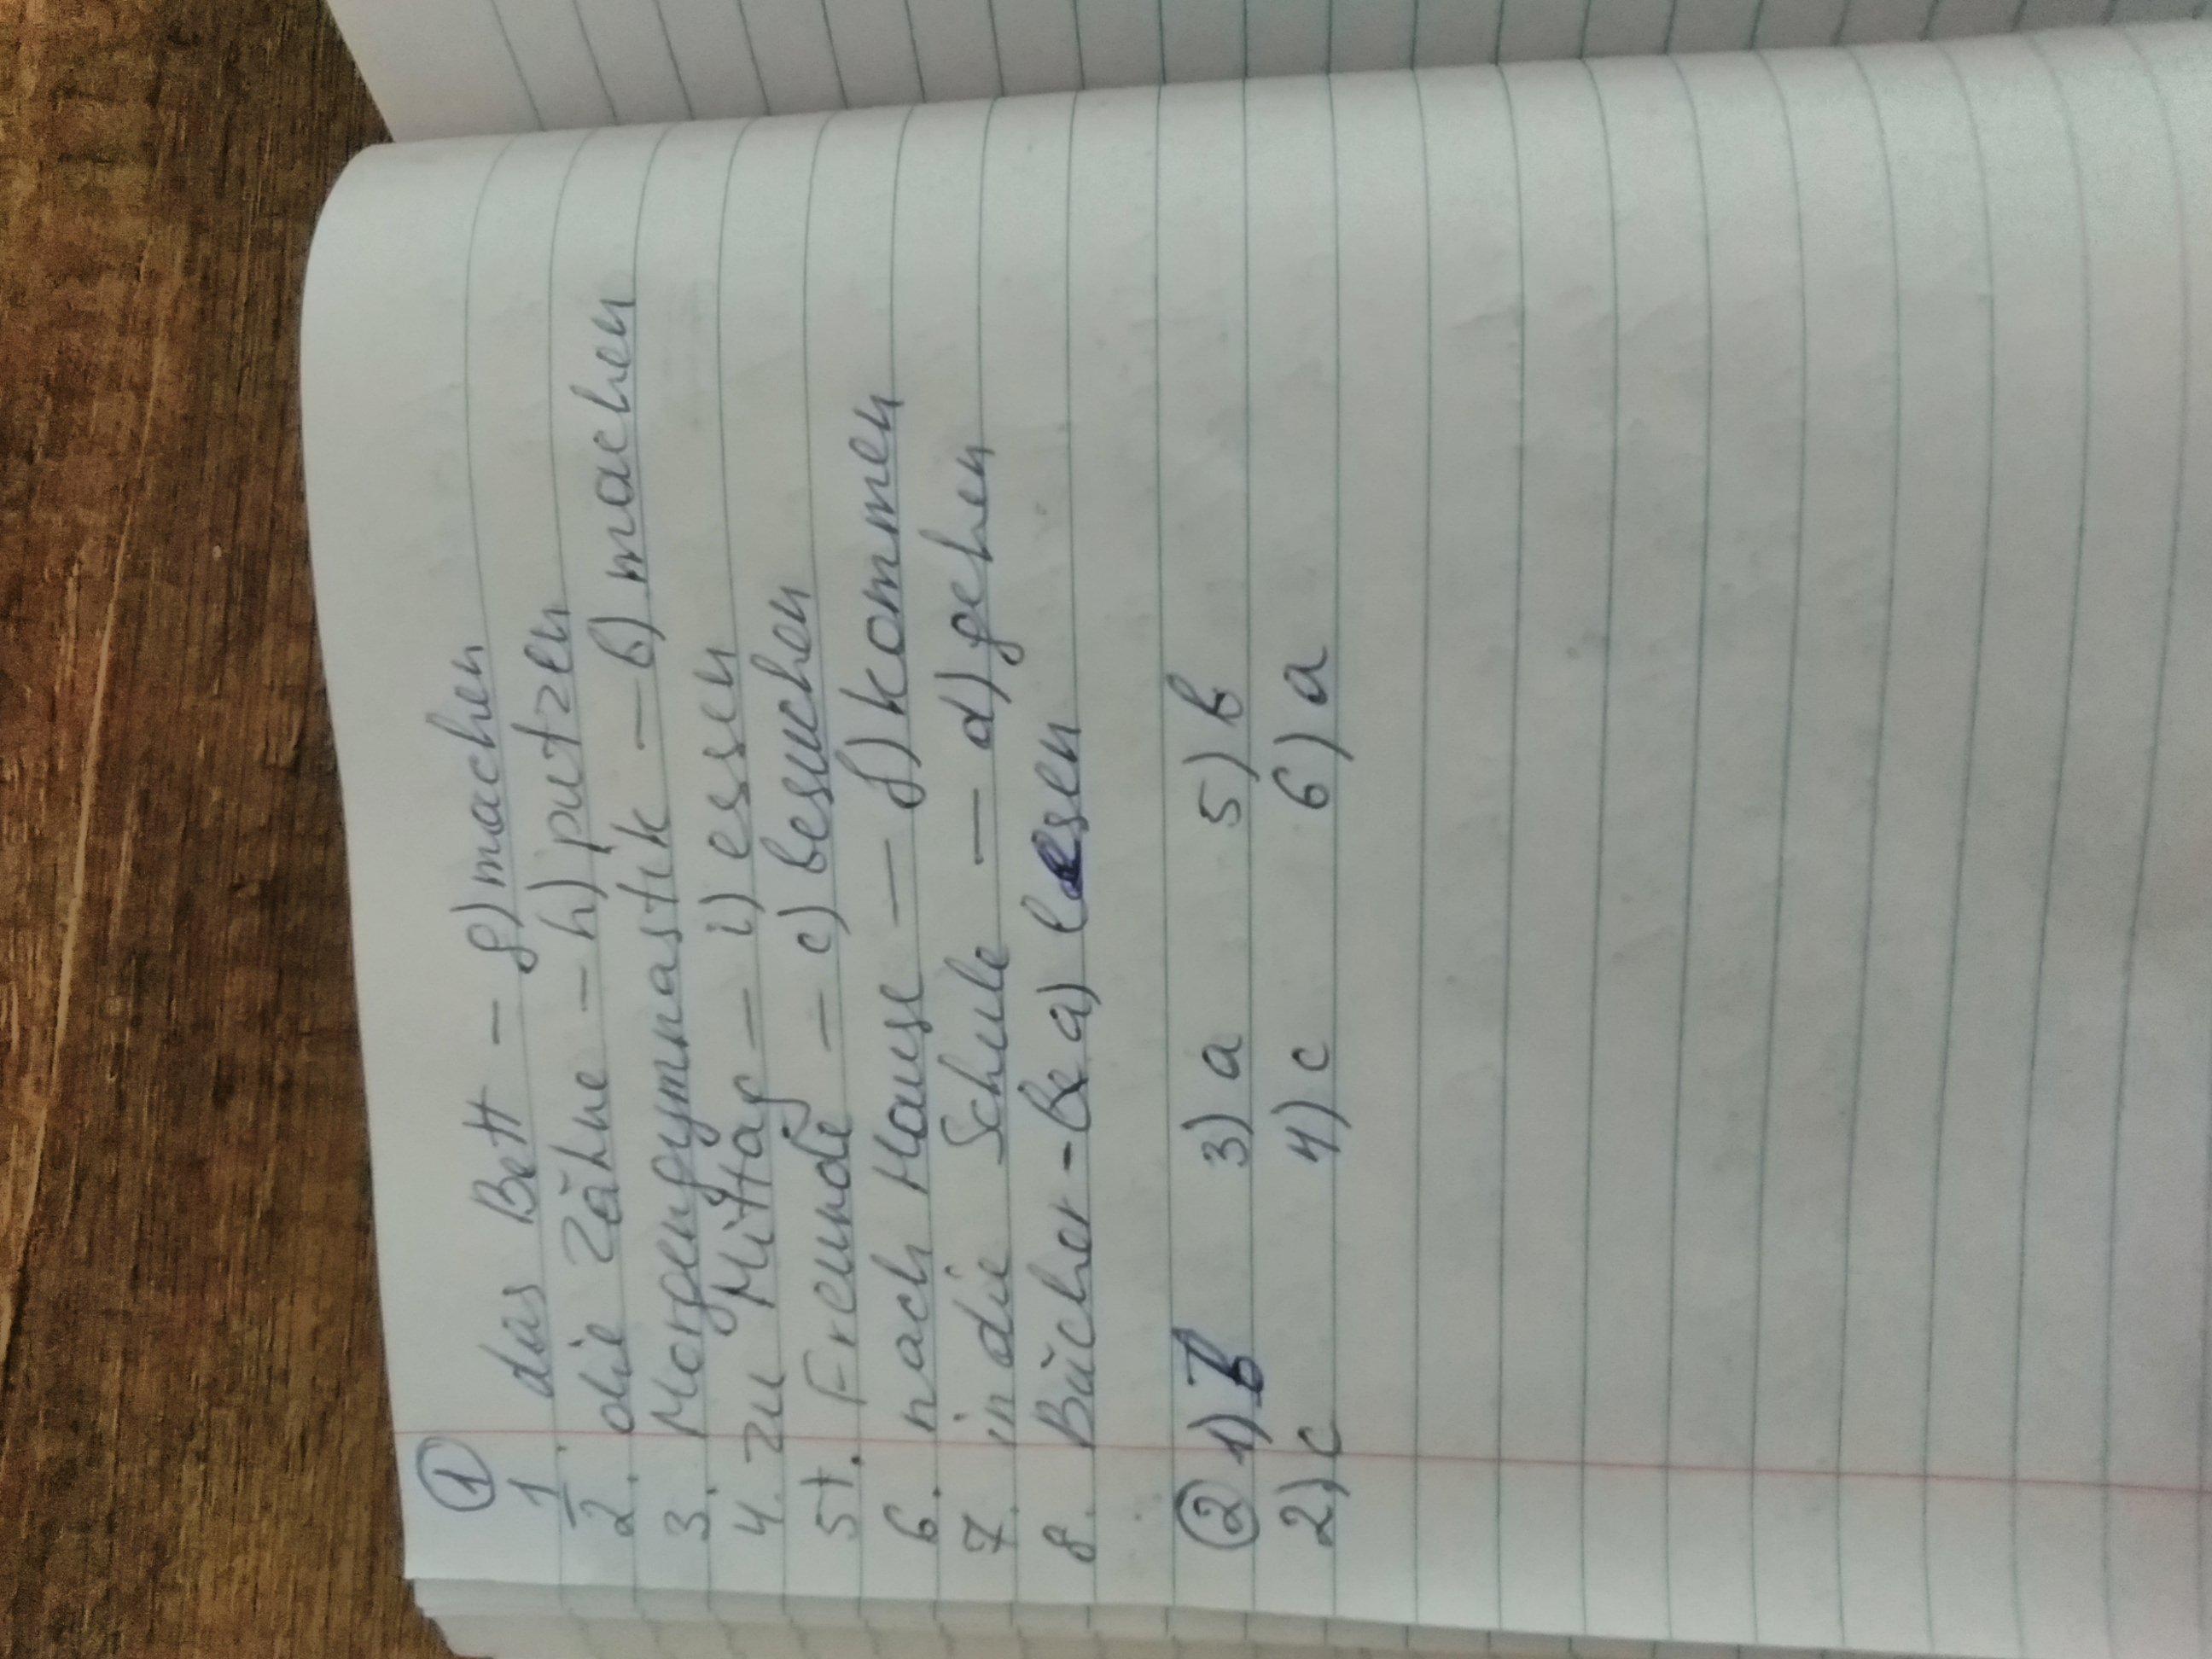 ①
1. das Bett – g) machen
2. die Zähne – h) putzen
3. Morgengymnastik – b) machen
4. zu Mittag – i) essen
5. Freunde – c) besuchen
6. nach Hause – f) kommen
7. in die Schule – d) gehen
8. Bücher – a) lesen
② 1) b 3) a 5) b
2) c 4) c 6) a